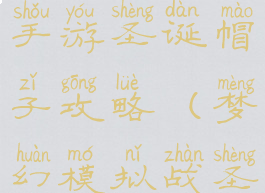 shǒu yóu shèng dàn mào
手游圣诞帽
zǐ gōng lüè mèng
子攻略（梦
huàn mó nǐ zhàn shèng
幻模拟战圣